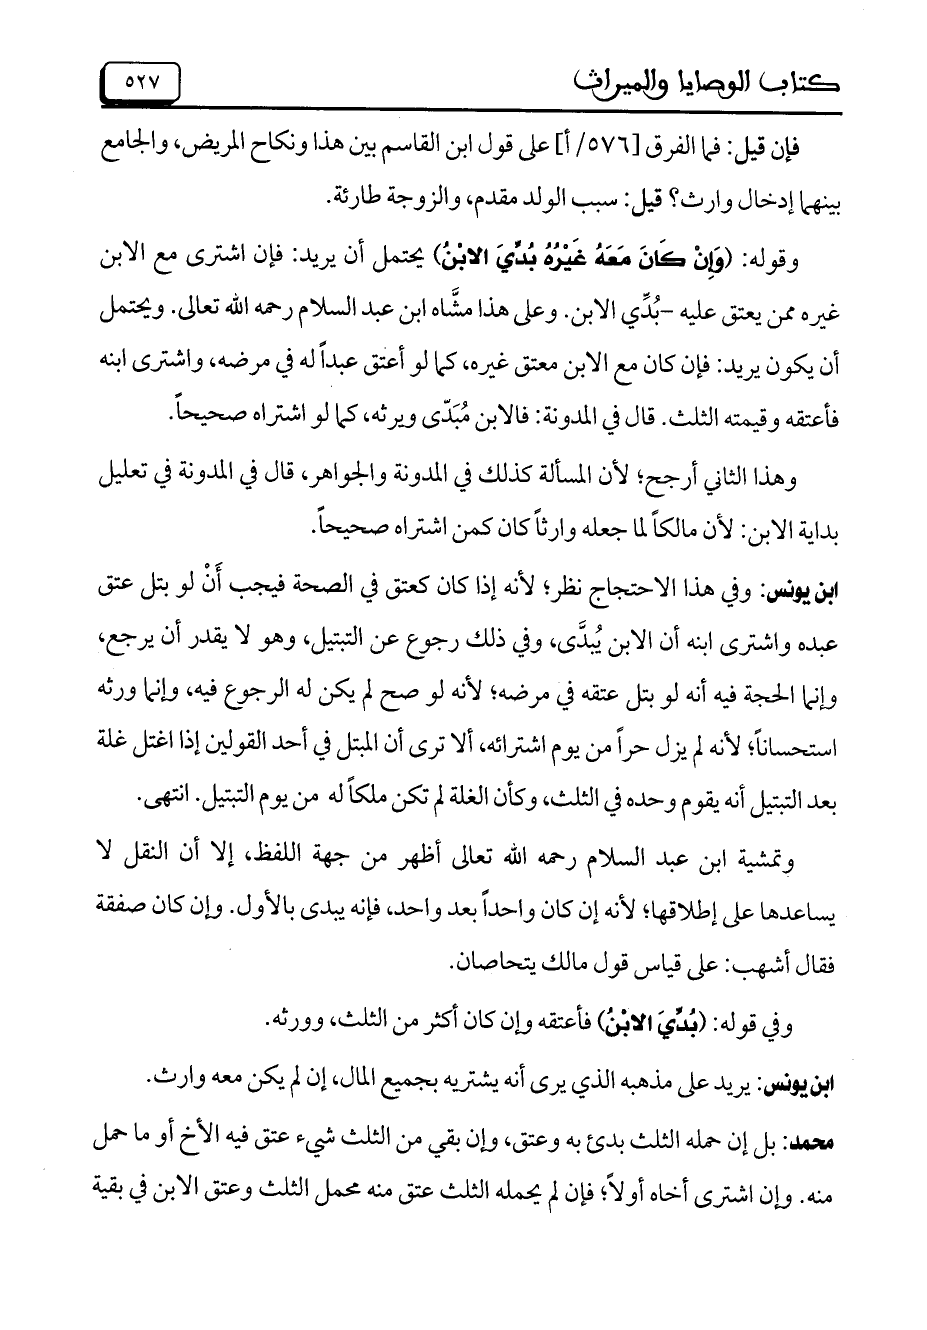 كتاب الوصايا والميراث
٥٢٧
فإن قيل: فما الفرق [٥٧٦/ أ] على قول ابن القاسم بين هذا ونكاح المريض، والجامع
بينهما إدخال وارث؟ قيل: سبب الولد مقدم، والزوجة طارئة.
وقوله: (وَإِنْ كَانَ مَعَهُ غَيْرُهُ بُدِّيَ الابْنُ) يحتمل أن يريد: فإن اشترى مع الابن
غيره ممن يعتق عليه –بُدِّي الابن. وعلى هذا مشَّاه ابن عبد السلام رحمه الله تعالى. ويحتمل
أن يكون يريد: فإن كان مع الابن معتق غيره، كما لو أعتق عبداً له في مرضه، واشترى ابنه
فأعتقه وقيمته الثلث. قال في المدونة: فالابن مُبَدّى ويرثه، كما لو اشتراه صحيحاً.
وهذا الثاني أرجح؛ لأن المسألة كذلك في المدونة والجواهر، قال في المدونة في تعليل
بداية الابن: لأن مالكاً لما جعله وارثاً كان كمن اشتراه صحيحاً.
ابن يونس: وفي هذا الاحتجاج نظر؛ لأنه إذا كان كعتق في الصحة فيجب أَنْ لو بتل عتق
عبده واشترى ابنه أن الابن يُبدَّى، وفي ذلك رجوع عن التبتيل، وهو لا يقدر أن يرجع،
وإنما الحجة فيه أنه لو بتل عتقه في مرضه؛ لأنه لو صح لم يكن له الرجوع فيه، وإنما ورثه
استحساناً؛ لأنه لم يزل حراً من يوم اشترائه، ألا ترى أن المبتل في أحد القولين إذا اغتل غلة
بعد التبتيل أنه يقوم وحده في الثلث، وكأن الغلة لم تكن ملكاً له من يوم التبتيل. انتهى.
وتمشية ابن عبد السلام رحمه الله تعالى أظهر من جهة اللفظ، إلا أن النقل لا
يساعدها على إطلاقها؛ لأنه إن كان واحداً بعد واحد، فإنه يبدى بالأول. وإن كان صفقة
فقال أشهب: على قياس قول مالك يتحاصان.
وفي قوله: (بُدِّيَ الابْنُ) فأعتقه وإن كان أكثر من الثلث، وورثه.
ابن يونس: يريد على مذهبه الذي يرى أنه يشتريه بجميع المال، إن لم يكن معه وارث.
محمد: بل إن حمله الثلث بدئ به وعتق، وإن بقي من الثلث شيء عتق فيه الأخ أو ما حمل
منه. وإن اشترى أخاه أولاً؛ فإن لم يحمله الثلث عتق منه محمل الثلث وعتق الابن في بقية